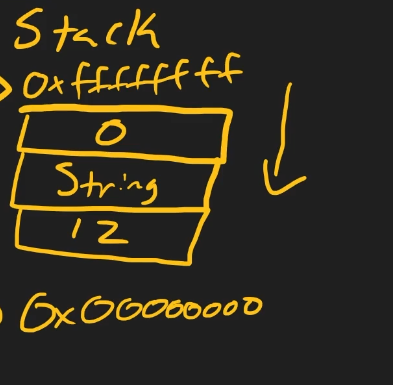 Stack
0xffffffff
0
String
12
0x00000000